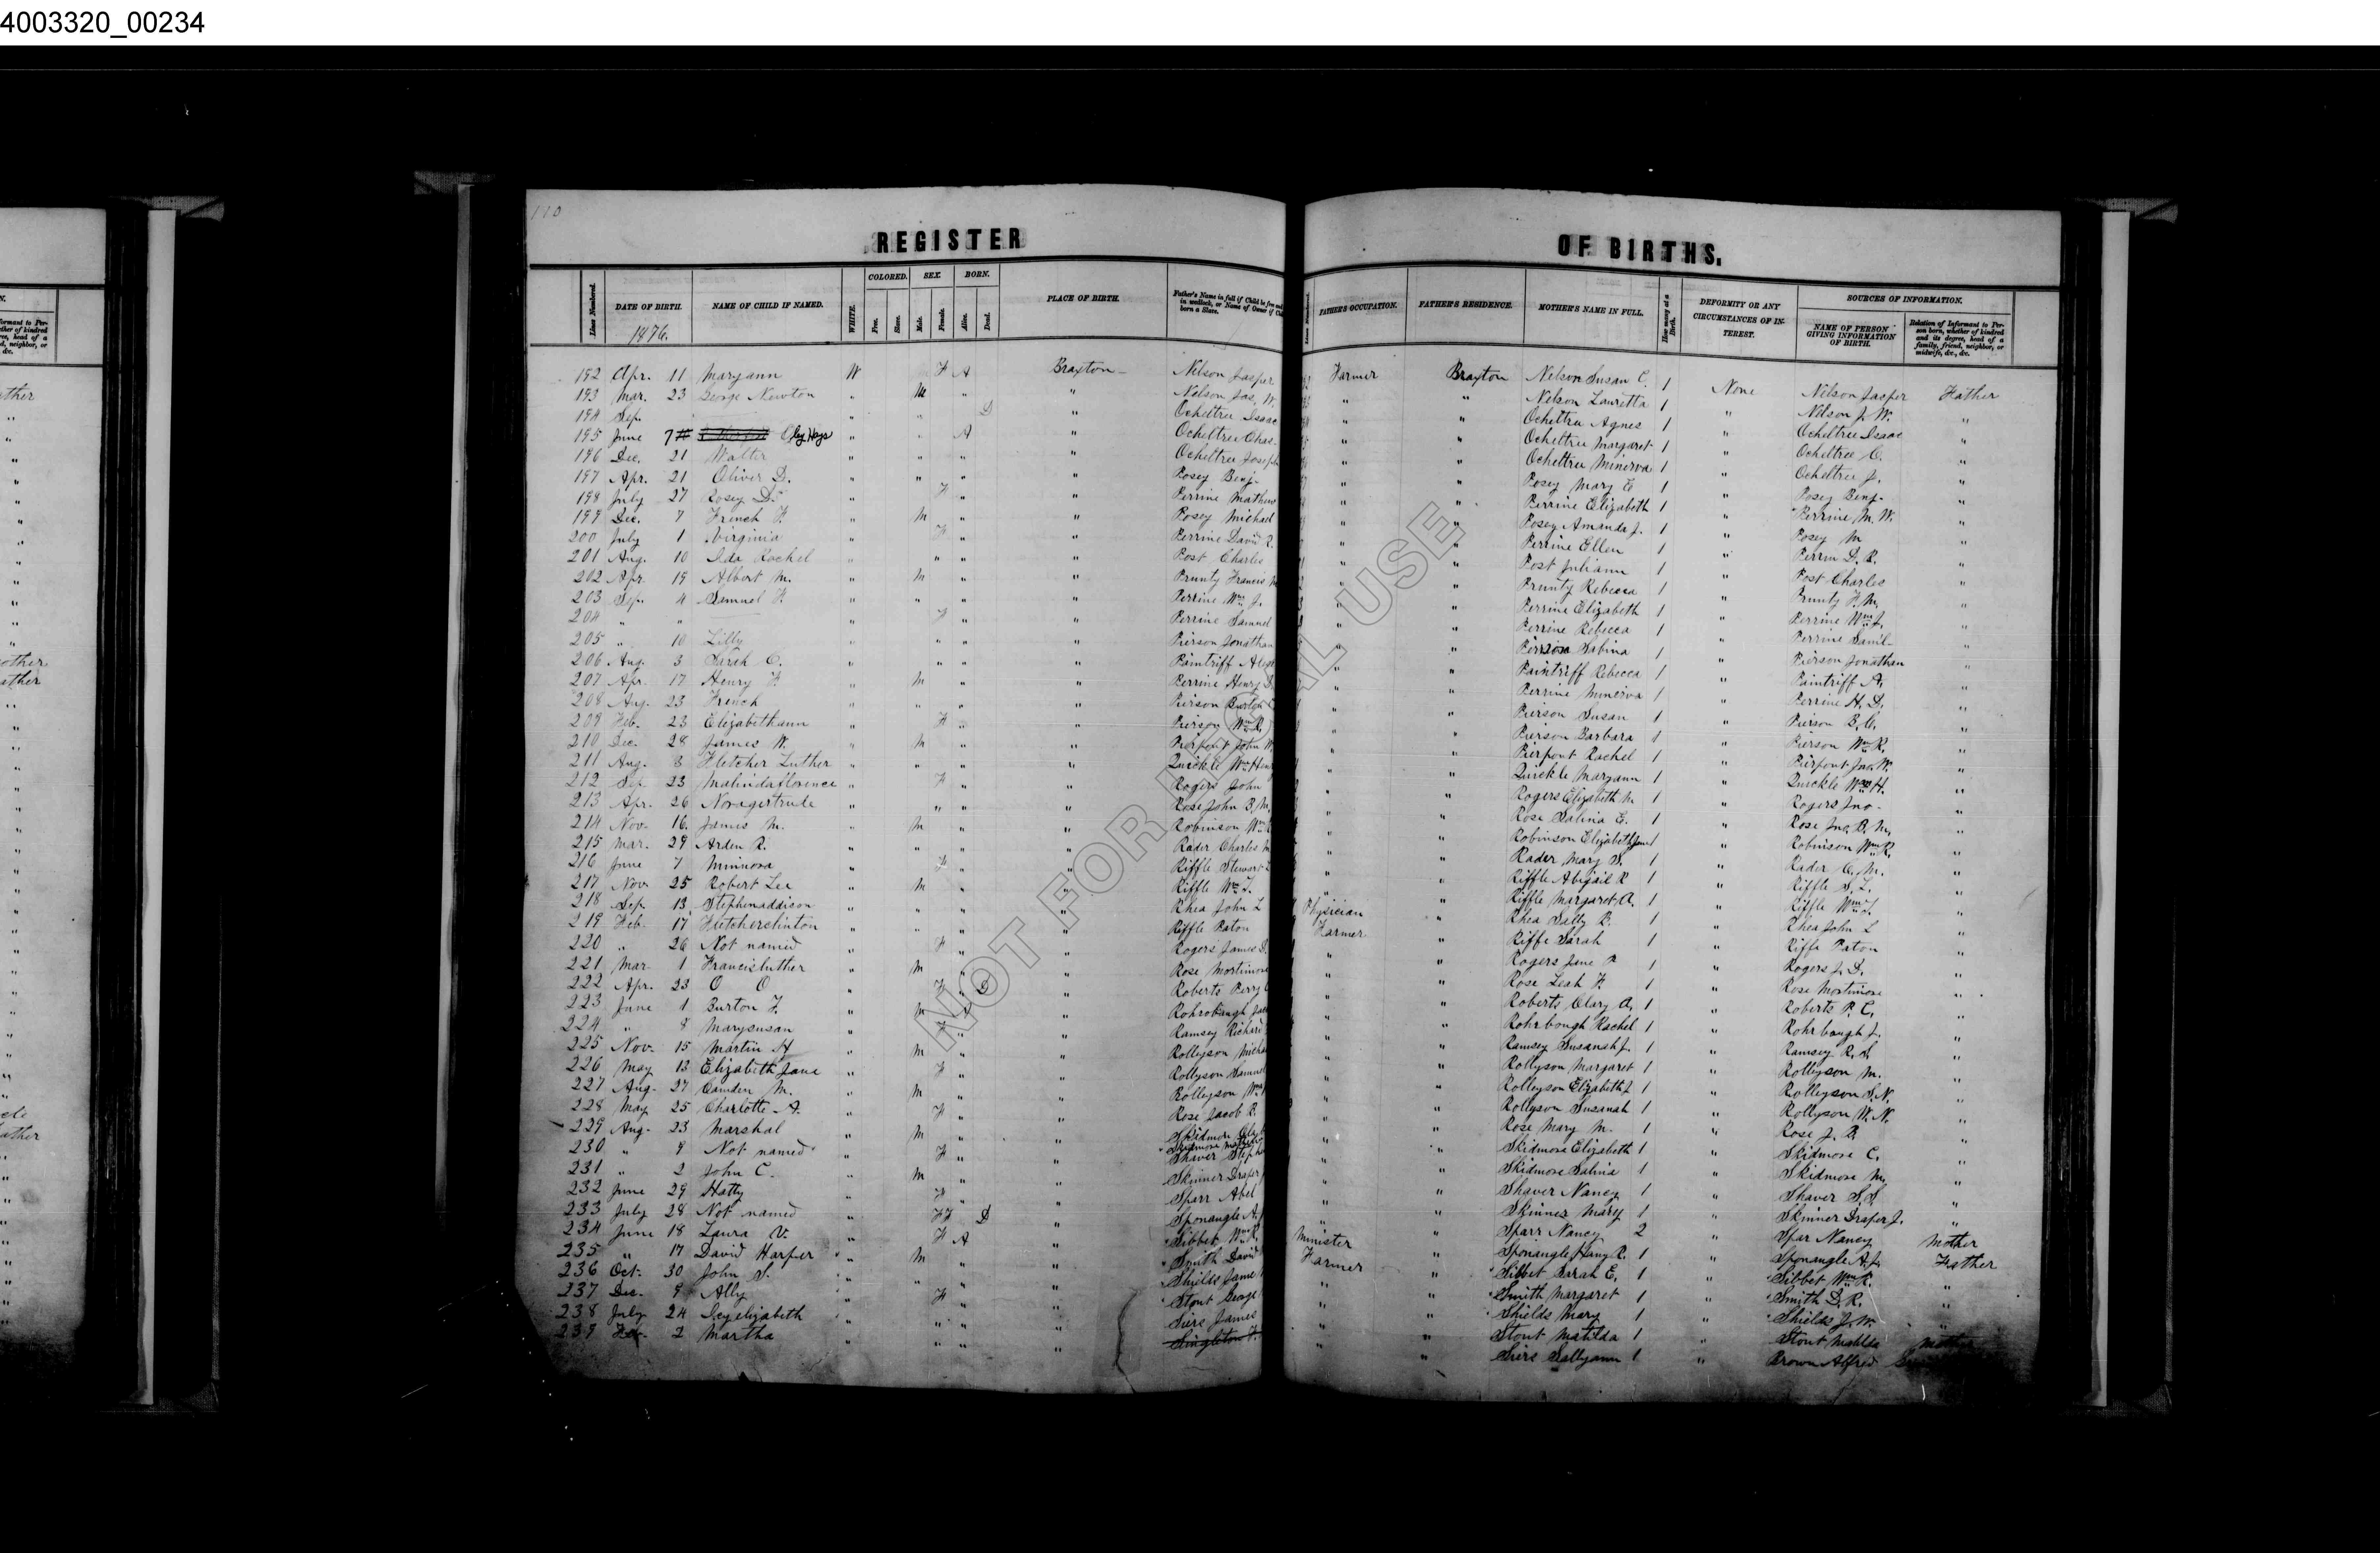 4003320_00234
110
REGISTER OF BIRTHS.
Lines Numbered. DATE OF BIRTH. NAME OF CHILD IF NAMED. WHITE. COLORED. Free. Slave. SEX. Male. Female. BORN. Alive. Dead. PLACE OF BIRTH. Father's Name in full if Child be free and born in wedlock, or Name of Owner if
FATHER'S OCCUPATION. FATHER'S RESIDENCE. MOTHER'S NAME IN FULL. How many at a Birth. DEFORMITY OR ANY CIRCUMSTANCES OF INTEREST. SOURCES OF INFORMATION. NAME OF PERSON GIVING INFORMATION OF BIRTH. Relation of Informant to Person born, whether of kindred and its degree, head of a family, friend, neighbor, or midwife, &c., &c.
1876.
192 Apr. 11 Maryann W F A Braxton Nelson Jasper Farmer Braxton Nelson Susan C. 1 None Nelson Jasper Father
193 Mar. 23 George Newton " M " " Nelson Jas. W. " " Nelson Lauretta 1 " Nelson J. W. "
194 Sep. " " D " Ocheltree Isaac " " Ocheltree Agnes 1 " Ocheltree Isaac "
195 June 7 Hays " " A " Ocheltree Chas. " " Ocheltree Margaret 1 " Ocheltree C. "
196 Dec. 21 Walter " " " " Ocheltree Joseph " " Ocheltree Minerva 1 " Ocheltree J. "
197 Apr. 21 Oliver D. " " " " Posey Benj. " " Posey Mary E 1 " Posey Benj. "
198 July 27 Rosey D. " F " " Perrine Mathew " " Perrine Elizabeth 1 " Perrine M. W. "
199 Dec. 7 French F. " M " " Posey Michael " " Posey Amanda J. 1 " Posey M "
200 July 1 Virginia " F " " Perrine David R. " " Perrine Ellen 1 " Perrin D. R. "
201 Aug. 10 Ida Rachel " " " " Post Charles " " Post Juliann 1 " Post Charles "
202 Apr. 19 Albert M. " M " " Prunty Francis " " Prunty Rebecca 1 " Prunty F. M. "
203 Sep. 4 Samuel F. " " " " Perrine Wm J. " " Perrine Elizabeth 1 " Perrine Wm J. "
204 " " " F " " Perrine Samuel " " Perrine Rebecca 1 " Perrine Saml "
205 " 10 Lilly " " " " Pierson Jonathan " " Sabina 1 " Pierson Jonathan "
206 Aug. 3 Sarah C. " " " " Paintriff " " Paintriff Rebecca 1 " Paintriff A. "
207 Apr. 17 Henry F. " M " " Perrine Henry D. " " Perrine Minerva 1 " Perrine H. D. "
208 Aug. 23 French " " " " Pierson Burton " " Pierson Susan 1 " Pierson B. C. "
209 Feb. 23 Elizabethann " F " " Pierson Wm R. " " Pierson Barbara 1 " Pierson Wm R. "
210 Dec. 28 James W. " M " " Pierpont John W. " " Pierpont Rachel 1 " Pierpont Jno. W. "
211 Aug. 8 Fletcher Luther " " " " Quickle Wm Henry " " Quickle Maryann 1 " Quickle Wm H. "
212 Sep. 23 Malindaflorence " F " " Rogers John " " Rogers Elizabeth M 1 " Rogers Jno. "
213 Apr. 26 Noragertrude " " " " Rose John B. M. " " Rose Salina E. 1 " Rose Jno. B. M. "
214 Nov. 16. James M. " M " " Robinson Wm " " Robinson Elizabeth Jane 1 " Robinson Wm R. "
215 Mar. 29 Arden R. " " " " Rader Charles M " " Rader Mary S. 1 " Rader C. M. "
216 June 7 Minnora " F " " Riffle Stewart L " " Riffle Abigail R 1 " Riffle S. L. "
217 Nov. 25 Robert Lee " M " " Riffle Wm T. " " Riffle Margaret A. 1 " Riffle Wm "
218 Sep. 13 Stephenaddison " " " " Rhea John L Physician " Rhea Sally B. 1 " Rhea John L "
219 Feb. 17 Fletcherslinton " " " " Riffle Paton Farmer " Riffe Sarah 1 " Riffe Paton "
220 " 26 Not named " F " " Rogers James D. " " Rogers Jane 1 " Rogers J. D. "
221 Mar. 1 Francisluther " M " " Rose Mortimore " " Rose Leah F. 1 " Rose Mortimore "
222 Apr. 23 O O " F " D " Roberts Perry C " " Roberts Clary A. 1 " Roberts P. C. "
223 June 1 Burton F. " M A " Rohrobaugh " " Rohrbough Rachel 1 " Rohrbaugh J. "
224 " 8 Marysusan " F " " Ramsey Richard " " Ramsey Susanah J. 1 " Ramsey R. S. "
225 Nov. 15 Martin H " M " " Rollyson Michael " " Rollyson Margaret 1 " Rollyson M. "
226 May 13 Elizabeth Jane " F " " Rollyson Samuel " " Rolleyson Elizabeth J 1 " Rolleyson S. N. "
227 Aug. 27 Camden M. " M " " Rolleyson Wm " " Rollyson Susanah 1 " Rollyson W. N. "
228 May 25 Charlotte A. " F " " Rose Jacob B. " " Rose Mary M. 1 " Rose J. B. "
229 Aug. 23 Marshal " M " " Skidmore " " Skidmore Elizabeth 1 " Skidmore C. "
Skidmore " " Skidmore Salina 1 " Skidmore M. "
230 " 9 Not named " F " " Shaver " " Shaver Nancy 1 " Shaver S. S. "
231 " 2 John C. " M " " Skinner Draper " " Skinner Mary 1 " Skinner Draper J. "
232 June 29 Hatty " F " " Sparr Abel " " Sparr Nancy 2 " Spar Nancy Mother
233 July 28 Not named " FF D " Sponangle A. Minister " Sponangle R. 1 " Sponangle A. J. Father
234 June 18 Laura V. " F A " Sibbet Wm R. Farmer " Sibbet Sarah E. 1 " Sibbet Wm R. "
235 " 17 David Harper " M " " Smith David " " Smith Margaret 1 " Smith D. R. "
236 Oct. 30 John S. " " " " Shields James " " Shields Mary 1 " Shields J. W. "
237 Dec. 9 Ally " F " " Stout George " " Stout Matilda 1 " Stout Matilda Mother
238 July 24 Icyelizabeth " " " " Siers James " " Siers Sallyann 1 " Brown Alfred
239 Feb. 2 Martha " " " " Singleton F.
NOT FOR USE